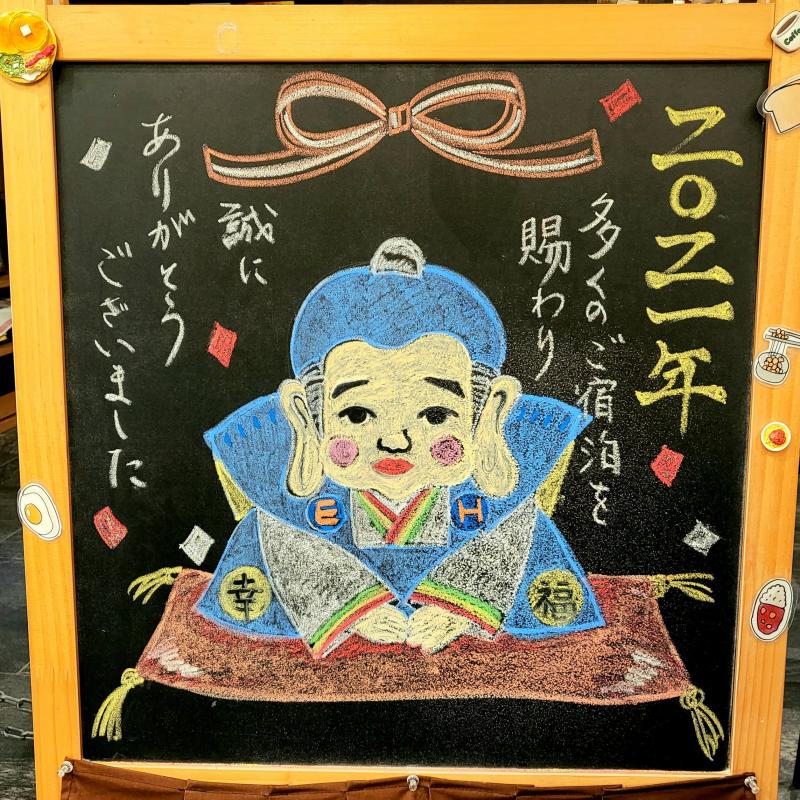 二〇二一年
多くのご宿泊を
賜わり
誠に
ありがとう
ございました
E H
幸 福
Coffee